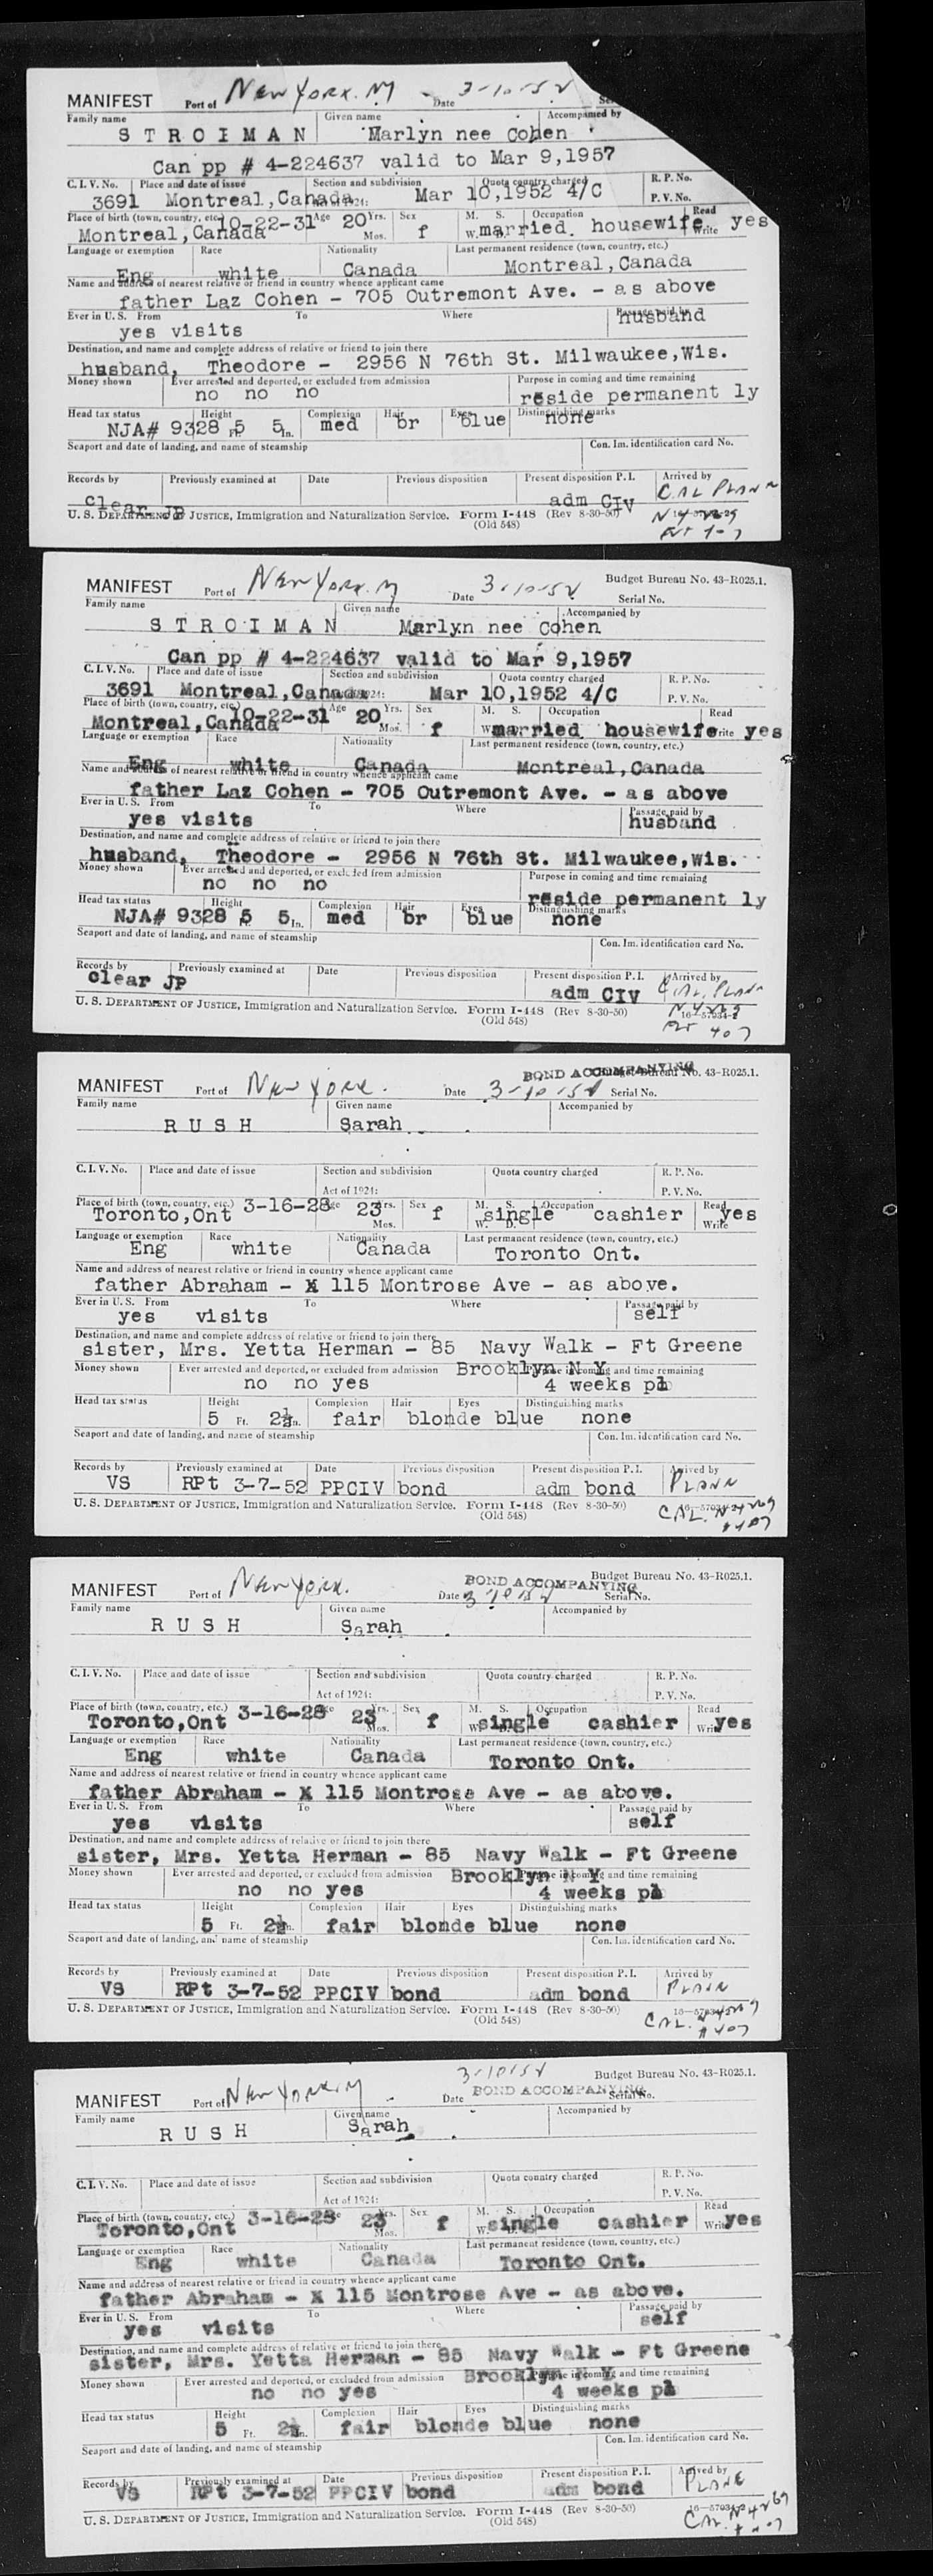 MANIFEST Port of New York. NY - Date 3-10-52 Se
Family name Given name Accompanied by
STROIMAN Marlyn nee Cohen
Can pp # 4-224637 valid to Mar 9,1957
C. I. V. No. Place and date of issue Section and subdivision Quota country charged R. P. No.
3691 Montreal,Canada Mar 10,1952 4/C P. V. No.
Place of birth (town, country, etc.) 10-22-31 Age 20 Yrs. Sex M. S. Occupation Read
Montreal,Canada Mos. f W. married. housewife Write yes
Language or exemption Race Nationality Last permanent residence (town, country, etc.)
Eng white Canada Montreal,Canada
Name and address of nearest relative or friend in country whence applicant came
father Laz Cohen - 705 Outremont Ave. - as above
Ever in U. S. From To Where Passage paid by
yes visits husband
Destination, and name and complete address of relative or friend to join there
husband, Theodore - 2956 N 76th St. Milwaukee,Wis.
Money shown Ever arrested and deported, or excluded from admission Purpose in coming and time remaining
no no no reside permanent ly
Head tax status Height Complexion Hair Eyes Distinguishing marks
NJA# 9328 5 Ft. 5 In. med br blue none
Seaport and date of landing, and name of steamship Con. Im. identification card No.
Records by Previously examined at Date Previous disposition Present disposition P. I. Arrived by
clear JP adm CIV CAL PLANE
U. S. DEPARTMENT OF JUSTICE, Immigration and Naturalization Service. Form I-448 (Rev 8-30-50)
(Old 548)
MANIFEST Port of New York. NY Date 3-10-52 Budget Bureau No. 43-R025.1.
Serial No.
Family name Given name Accompanied by
STROIMAN Marlyn nee Cohen
Can pp # 4-224637 valid to Mar 9,1957
C. I. V. No. Place and date of issue Section and subdivision Quota country charged R. P. No.
3691 Montreal,Canada 1924: Mar 10,1952 4/C P. V. No.
Place of birth (town, country, etc.) 10-22-31 Age 20 Yrs. Sex M. S. Occupation Read
Montreal,Canada Mos. f W. married. housewife Write yes
Language or exemption Race Nationality Last permanent residence (town, country, etc.)
Eng white Canada Montreal,Canada
Name and address of nearest relative or friend in country whence applicant came
father Laz Cohen - 705 Outremont Ave. - as above
Ever in U. S. From To Where Passage paid by
yes visits husband
Destination, and name and complete address of relative or friend to join there
husband, Theodore - 2956 N 76th St. Milwaukee,Wis.
Money shown Ever arrested and deported, or excluded from admission Purpose in coming and time remaining
no no no reside permanent ly
Head tax status Height Complexion Hair Eyes Distinguishing marks
NJA# 9328 5 Ft. 5 In. med br blue none
Seaport and date of landing, and name of steamship Con. Im. identification card No.
Records by Previously examined at Date Previous disposition Present disposition P. I. Arrived by
clear JP adm CIV CAL. PLANE
U. S. DEPARTMENT OF JUSTICE, Immigration and Naturalization Service. Form I-448 (Rev 8-30-50) 16—57034-2
(Old 548) 407
BOND ACCOMPANYING Budget Bureau No. 43-R025.1.
MANIFEST Port of New York. Date 3-10-52 Serial No.
Family name Given name Accompanied by
RUSH Sarah
C. I. V. No. Place and date of issue Section and subdivision Quota country charged R. P. No.
Act of 1924: P. V. No.
Place of birth (town, country, etc.) 3-16-28 Age 23 Yrs. Sex M. S. Occupation Read
Toronto,Ont Mos. f W. D. single cashier Write yes
Language or exemption Race Nationality Last permanent residence (town, country, etc.)
Eng white Canada Toronto Ont.
Name and address of nearest relative or friend in country whence applicant came
father Abraham - X 115 Montrose Ave - as above.
Ever in U. S. From To Where Passage paid by
yes visits self
Destination, and name and complete address of relative or friend to join there
sister, Mrs. Yetta Herman - 85 Navy Walk - Ft Greene
Money shown Ever arrested and deported, or excluded from admission Brooklyn N Y Purpose in coming and time remaining
no no yes 4 weeks
Head tax status Height Complexion Hair Eyes Distinguishing marks
5 Ft. 2½ In. fair blonde blue none
Seaport and date of landing, and name of steamship Con. Im. identification card No.
Records by Previously examined at Date Previous disposition Present disposition P. I. Arrived by
VS RPt 3-7-52 PPCIV bond adm bond PLANE
U. S. DEPARTMENT OF JUSTICE, Immigration and Naturalization Service. Form I-448 (Rev 8-30-50) CAL. N4269
(Old 548) #407
BOND ACCOMPANYING Budget Bureau No. 43-R025.1.
MANIFEST Port of New York. Date 3 10 52 Serial No.
Family name Given name Accompanied by
RUSH Sarah
C. I. V. No. Place and date of issue Section and subdivision Quota country charged R. P. No.
Act of 1924: P. V. No.
Place of birth (town, country, etc.) 3-16-28 Age 23 Yrs. Sex M. S. Occupation Read
Toronto,Ont Mos. f W. single cashier Write yes
Language or exemption Race Nationality Last permanent residence (town, country, etc.)
Eng white Canada Toronto Ont.
Name and address of nearest relative or friend in country whence applicant came
father Abraham - X 115 Montrose Ave - as above.
Ever in U. S. From To Where Passage paid by
yes visits self
Destination, and name and complete address of relative or friend to join there
sister, Mrs. Yetta Herman - 85 Navy Walk - Ft Greene
Money shown Ever arrested and deported, or excluded from admission Brooklyn N Y Purpose in coming and time remaining
no no yes 4 weeks
Head tax status Height Complexion Hair Eyes Distinguishing marks
5 Ft. 2½ In. fair blonde blue none
Seaport and date of landing, and name of steamship Con. Im. identification card No.
Records by Previously examined at Date Previous disposition Present disposition P. I. Arrived by
VS RPt 3-7-52 PPCIV bond adm bond PLANE
U. S. DEPARTMENT OF JUSTICE, Immigration and Naturalization Service. Form I-448 (Rev 8-30-50) CAL. N4269
(Old 548) #407
3-10-52 Budget Bureau No. 43-R025.1.
MANIFEST Port of New York. NY - Date BOND ACCOMPANYING Serial No.
Family name Given name Accompanied by
RUSH Sarah
C. I. V. No. Place and date of issue Section and subdivision Quota country charged R. P. No.
Act of 1924: P. V. No.
Place of birth (town, country, etc.) 3-16-28 Age 23 Yrs. Sex M. S. Occupation Read
Toronto,Ont Mos. f W. single cashier Write yes
Language or exemption Race Nationality Last permanent residence (town, country, etc.)
Eng white Canada Toronto Ont.
Name and address of nearest relative or friend in country whence applicant came
father Abraham - X 115 Montrose Ave - as above.
Ever in U. S. From To Where Passage paid by
yes visits self
Destination, and name and complete address of relative or friend to join there
sister, Mrs. Yetta Herman - 85 Navy Walk - Ft Greene
Money shown Ever arrested and deported, or excluded from admission Brooklyn N Y Purpose in coming and time remaining
no no yes 4 weeks
Head tax status Height Complexion Hair Eyes Distinguishing marks
5 Ft. 2½ In. fair blonde blue none
Seaport and date of landing, and name of steamship Con. Im. identification card No.
Records by Previously examined at Date Previous disposition Present disposition P. I. Arrived by
VS RPt 3-7-52 PPCIV bond adm bond PLANE
U. S. DEPARTMENT OF JUSTICE, Immigration and Naturalization Service. Form I-448 (Rev 8-30-50) CAL. N4269
(Old 548)